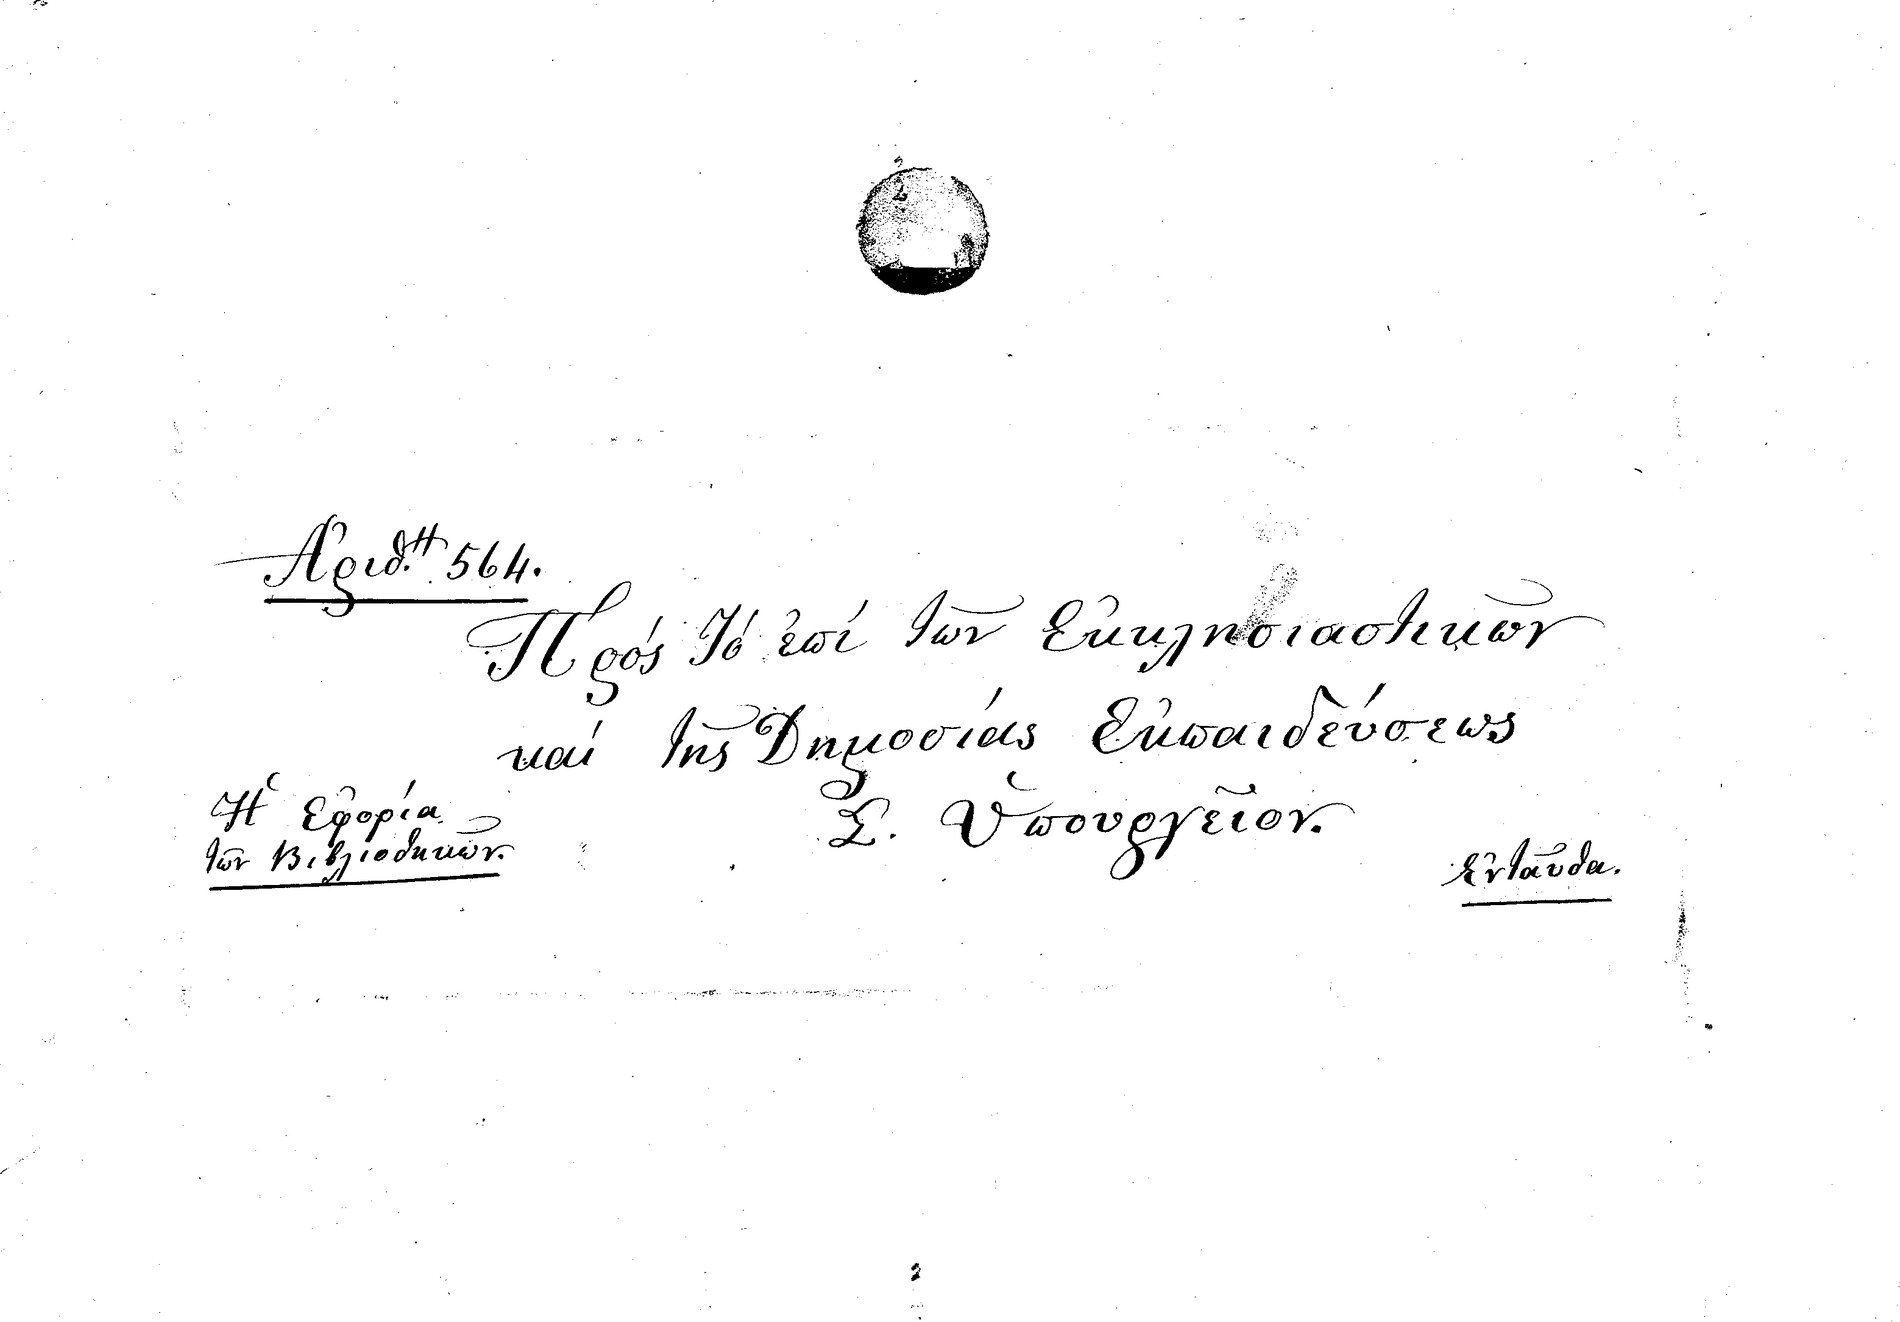 Ἀριθ. 564.
Πρὸς Τὸ ἐπὶ τῶν Ἐκκλησιαστικῶν
καὶ τῆς Δημοσίας Ἐκπαιδεύσεως
Σ. Ὑπουργεῖον.
Ἡ Ἐφορία
τῶν Βιβλιοθηκῶν.
Ἐνταῦθα.